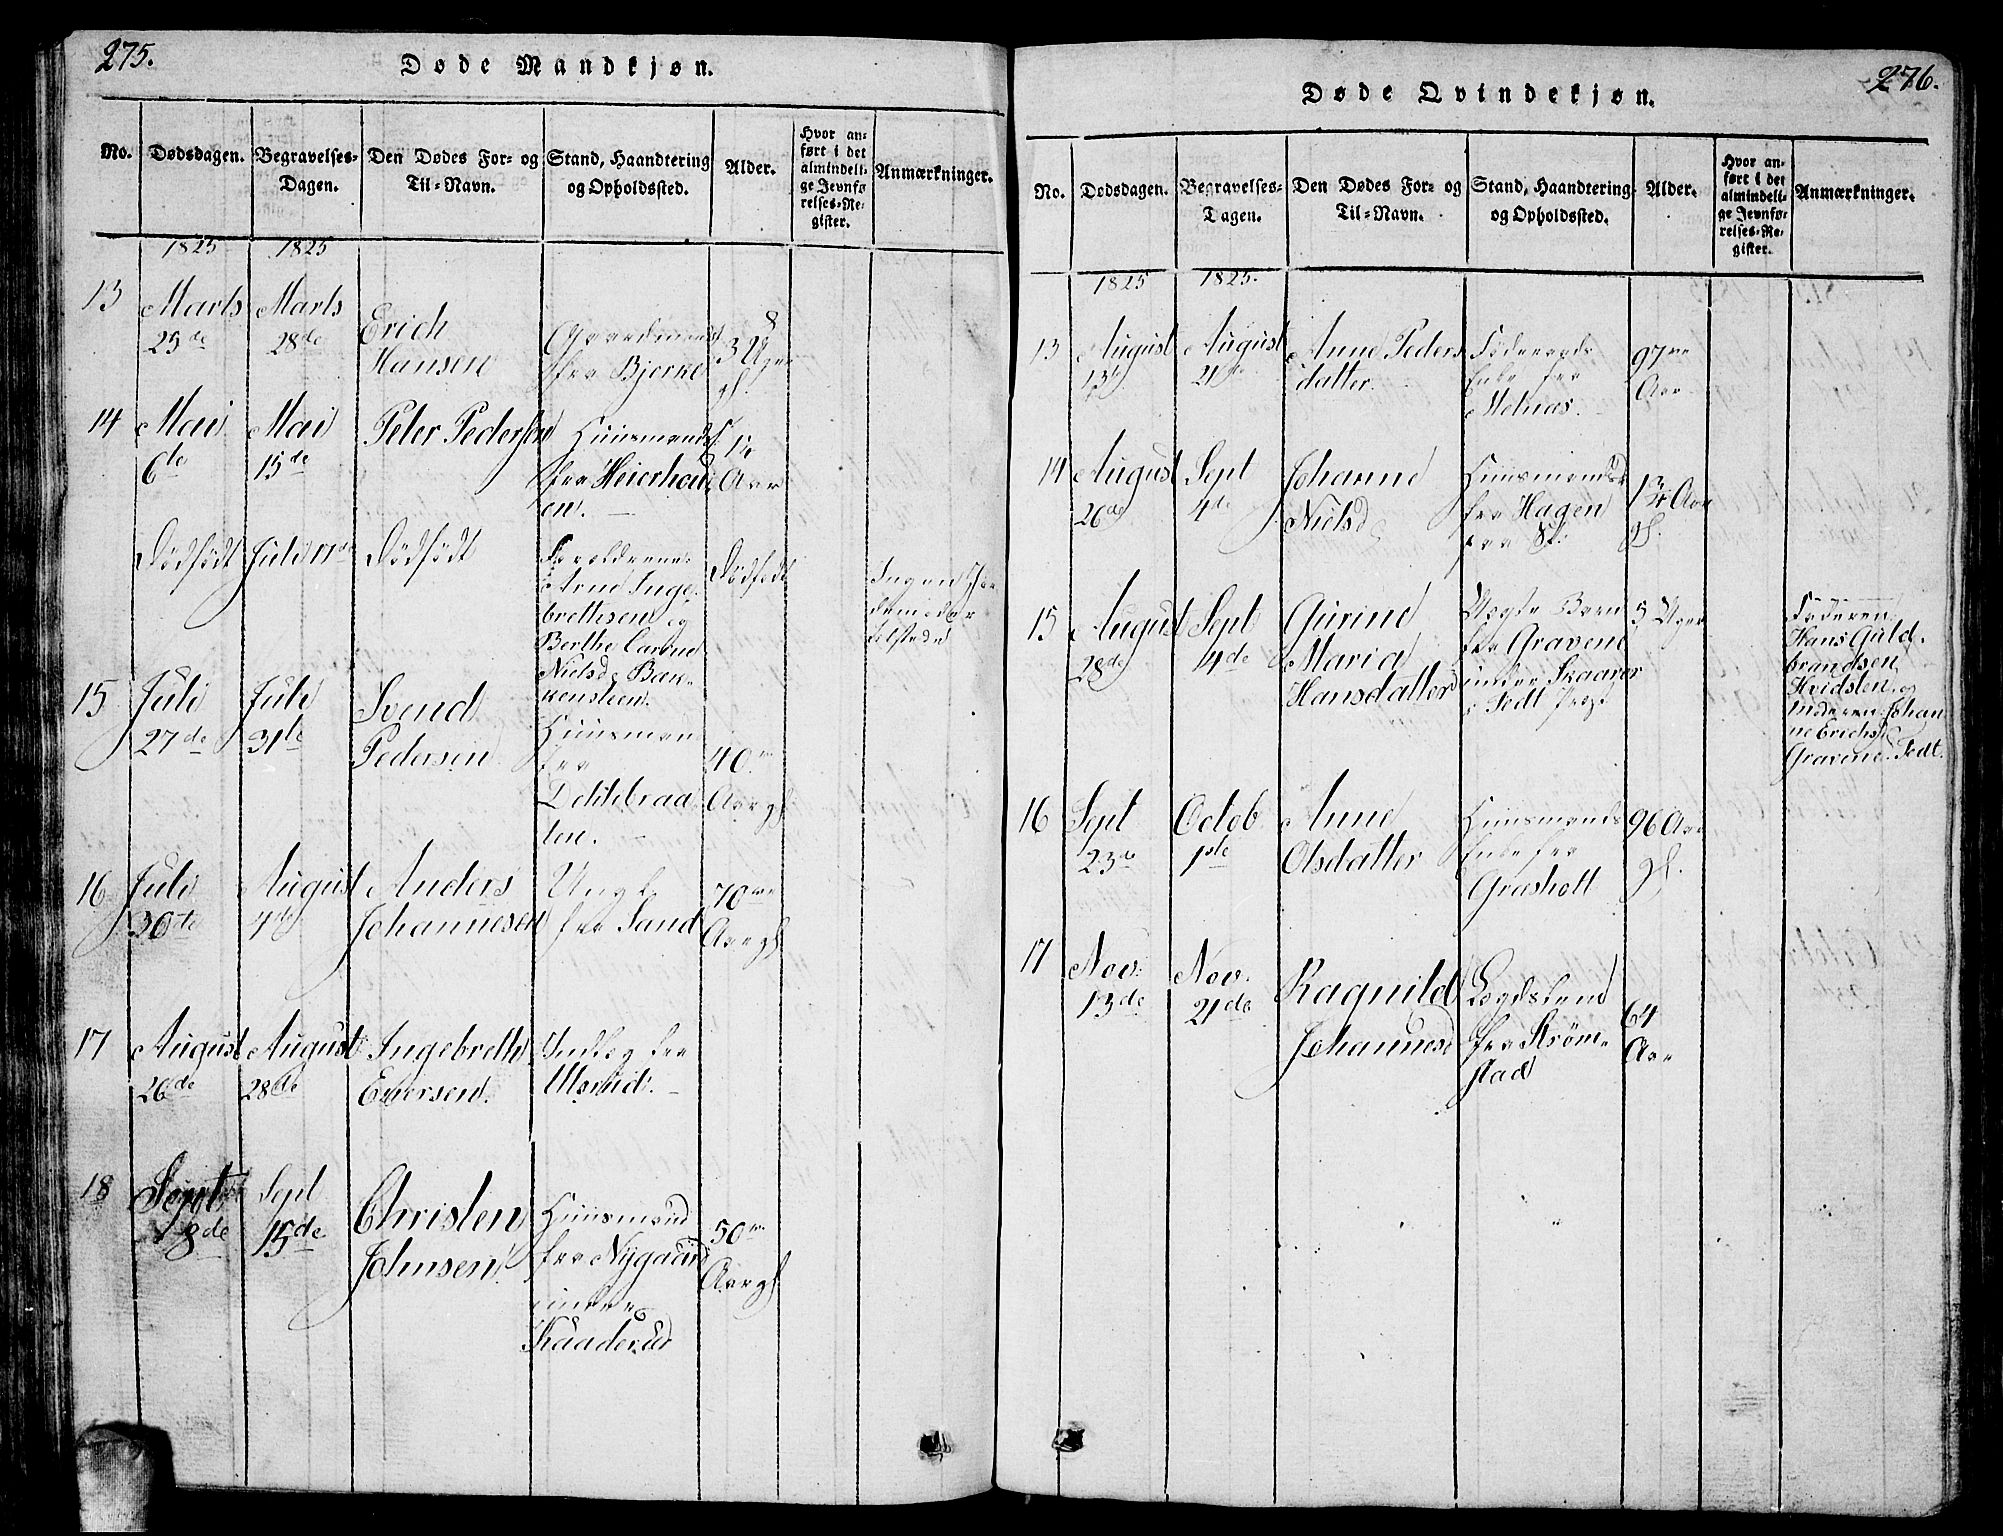 275.
Døde Mandkjøn.
No.
Dødsdagen.
Begravelses-
Dagen.
Den Dødes For- og
Til-Navn.
Stand, Haandtering
og Opholdssted.
Alder.
Hvor an-
ført i det
almindeli-
ge Jevnfø-
relses-Re-
gister.
Anmærkninger.
1825
1825
13
Marts
25de
Marts
28de
Erich
Hansen
fra Bjerke
3 Uger
14
Mai
6te
Mai
15de
Peter Pedersen
Huusmands
fra Heierhou
en.
Aar
Dödfödt
Juli 17de
Dödfödt
Foreldrene
Arne Inge-
brethsen og
Berthe Carine
Nielsd. Bak-
kensteen.
Dödfödt
Ingen
tilstede
15
Juli
27de
Juli
31te
Svend
Pedersen
Huusmand
fra
braa
ten.
40
Aar gl.
16
Juli
30te
August
4de
Anders
Johannesen
Ungk.
fra Sand
70
Aar gl.
17
August
26de
August
28de
Ingebreth
Enersen.
Inderst fra
Ulsrud.
18
Sept
8de
Sept
15de
Christen
Johnsen
Huusmand
fra Nÿgaard
under
Kaaderud
50
Aar gl.
276.
Døde Qvindekjøn.
No.
Dødsdagen.
Begravelses-
Dagen.
Den Dødes For- og
Til-Navn.
Stand, Haandtering
og Opholdssted.
Alder.
Hvor an-
ført i det
almindeli-
ge Jevnfø-
relses-Re-
gister.
Anmærkninger.
1825
1825.
13
August
13de
August
21de
Anne Peders
datter.
Föderaads
Enke fra
Mehias.
97
Aar
14
August
26de
Sept
4de
Johanne
Nielsd
Huusmands
fra Hagen
Aar
gl.
15
August
28de
Sept
4de
Gurine
Maria
Hansdatter
Uægte Barn
fra Gravene
under Skaarer
i Fedt Præst
5 Uger
Faderen
Hans Guld-
brandsen
Hvidsten og
Moderen Johan-
ne Erichsd
Gravene. Fedt.
16
Sept
23de
Octob
1ste
Anne
Olsdatter
Huusmands
Enke fra
Grasholt
96 Aar
gl.
17
Nov.
13de
Nov.
21de
Ragnild
Johannesd
Lægdslem
fra Kröm-
stad
64
Aar